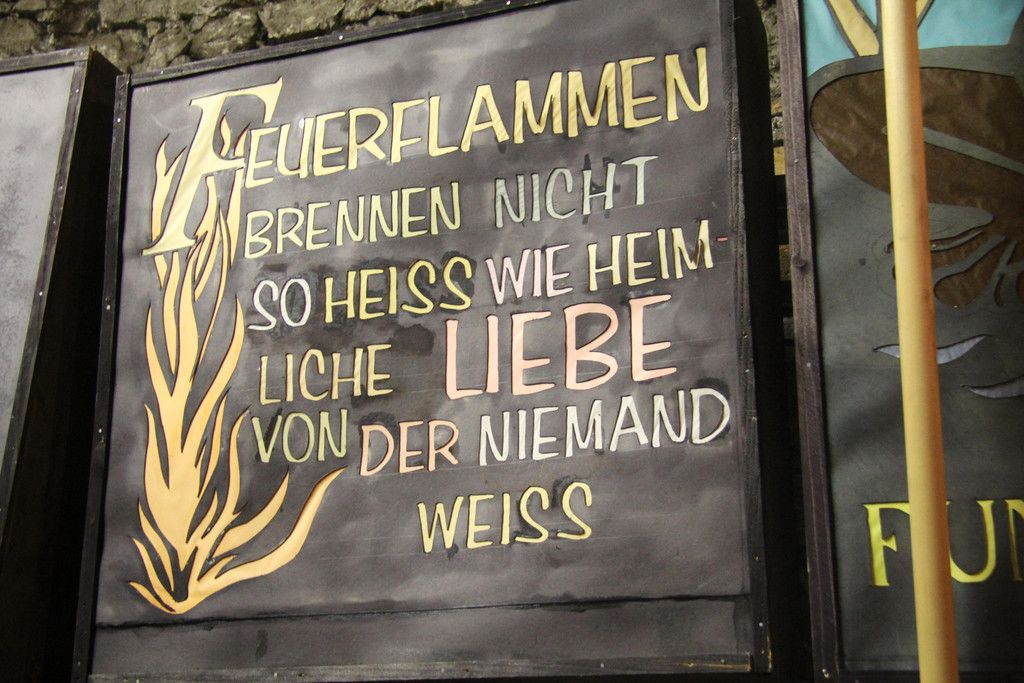 FEUERFLAMMEN
BRENNEN NICHT
SO HEISS WIE HEIM-
LICHE LIEBE
VON DER NIEMAND
WEISS
FUN